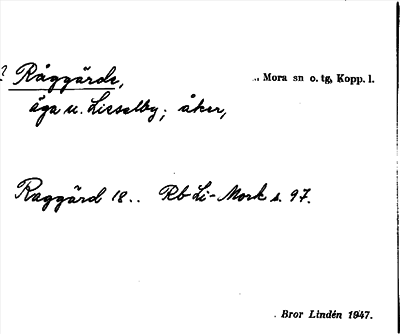 ? Råggärde, .. Mora sn o. tg, Kopp. l.
äga u. Lisselby; åker,
Raggärd 18.. Rb Li-Mork s. 97.
. Bror Lindén 1947.